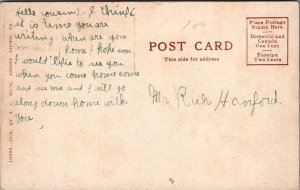 Hello cousin:- I think
it is time you are
writing. when are you
coming home I hope soon
I would like to see you
when you come home come
and see me and I will go
along down home with
you.
POST CARD
This side for address
Place Postage
Stamp Here
Domestic and
Canada
One Cent
Foreign
Two Cents
Mr Hanford.